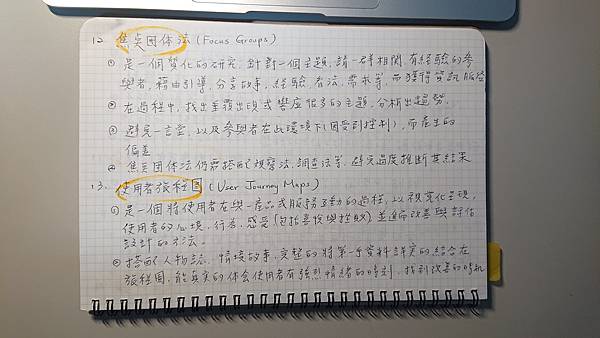 12. 焦點団体法 (Focus Groups)
① 是一個質化的研究, 針對一個主題, 請一群相關, 有經驗的參
與者, 藉由引導, 分享故事, 經驗, 看法, 需求等, 而獲得資訊
② 在過程中, 找出重覆出現或響度很多的主題, 分析出趨勢。
③ 避免一言堂, 以及參與者在此環境下(因受到控制), 而產生的
偏差
④ 焦點団体法仍需搭配観察法, 調查法等, 避免過度推斷其結果
13. 使用者旅程図 (User Journey Maps)
① 是一個將使用者在與一產品或服務互動的過程, 以視覚化呈現,
使用者的心境, 行為, 感受(包括喜悅與挫敗) 並進而改善與評估
設計的方法。
② 搭配人物誌, 情境故事, 完整的將第一手資料詳実的結合在
旅程図, 能真実的体会使用者有強烈情緒的時刻, 找到改善的時机